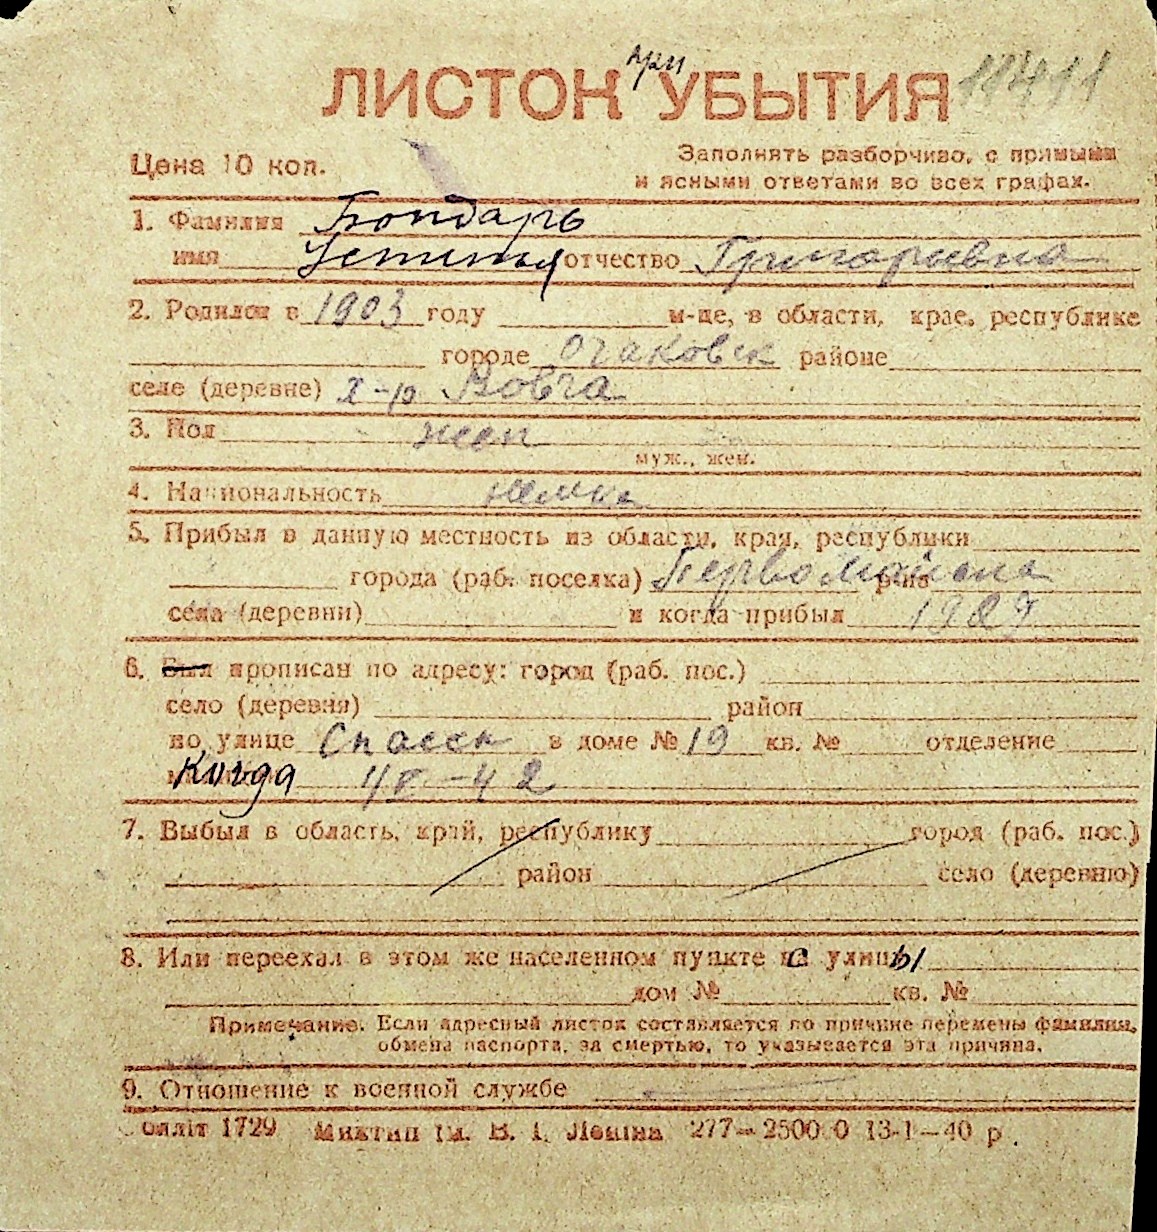 при
ЛИСТОК УБЫТИЯ 11411
Цена 10 коп.
Заполнять разборчиво, с прямыми
и ясными ответами во всех графах.
1. Фамилия Бондарь
имя Устинья отчество Григорьевна
2. Родился в 1903 году м-це, в области, крае, республике
городе Очаковск районе
селе (деревне) х-р Вовча
3. Пол жен
муж., жен.
4. Национальность немка
5. Прибыл в данную местность из области, края, республики
города (раб. поселка) Первомайска р-на
села (деревни) и когда прибыл 1929
6. Был прописан по адресу: город (раб. пос.)
село (деревня) район
по улице Спасск в доме № 19 кв. № отделение
Когда 4/V-42
7. Выбыл в область, край, республику город (раб. пос.)
район село (деревню)
8. Или переехал в этом же населенном пункте с улицы
дом № кв. №
Примечание. Если адресный листок составляется по причине перемены фамилии,
обмена паспорта, за смертью, то указывается эта причина.
9. Отношение к военной службе
Облліт 1729 Миктип ім. В. І. Леніна 277—2500 0 13-1—40 р.